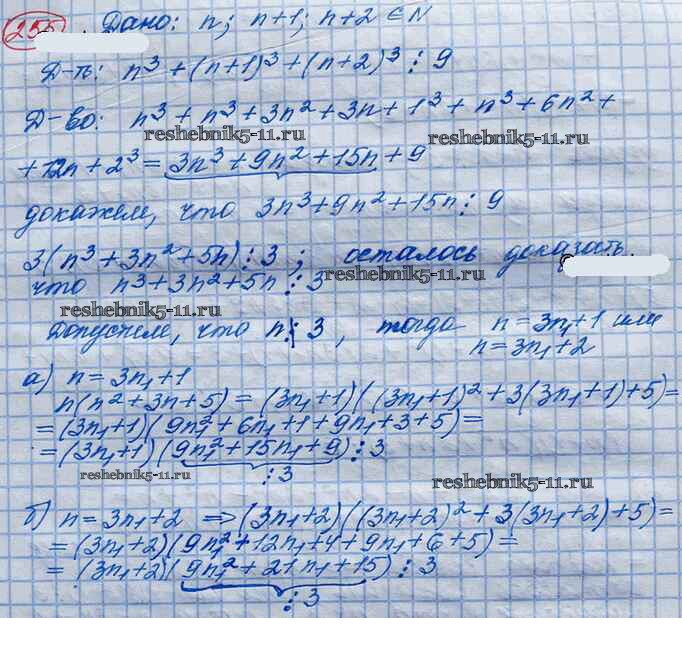 255 Дано: n; n+1; n+2 ∈ N
Д-ть: n³ + (n+1)³ + (n+2)³ ⋮ 9
Д-во: n³ + n³ + 3n² + 3n + 1³ + n³ + 6n² +
reshebnik5-11.ru reshebnik5-11.ru
+ 12n + 2³ = 3n³ + 9n² + 15n + 9
докажем, что 3n³ + 9n² + 15n ⋮ 9
3(n³ + 3n² + 5n) ⋮ 3; осталось доказать,
reshebnik5-11.ru
что n³ + 3n² + 5n ⋮ 3
reshebnik5-11.ru
Допустим, что n ⋮̸ 3, тогда n = 3n₁+1 или
n = 3n₁+2
а) n = 3n₁+1
n(n² + 3n + 5) = (3n₁+1)((3n₁+1)² + 3(3n₁+1)+5) =
= (3n₁+1)(9n₁² + 6n₁ + 1 + 9n₁ + 3 + 5) =
= (3n₁+1)(9n₁² + 15n₁ + 9) ⋮ 3
reshebnik5-11.ru ⋮ 3 reshebnik5-11.ru
б) n = 3n₁+2 ⇒ (3n₁+2)((3n₁+2)² + 3(3n₁+2)+5) =
= (3n₁+2)(9n₁² + 12n₁ + 4 + 9n₁ + 6 + 5) =
= (3n₁+2)(9n₁² + 21n₁ + 15) ⋮ 3
⋮ 3